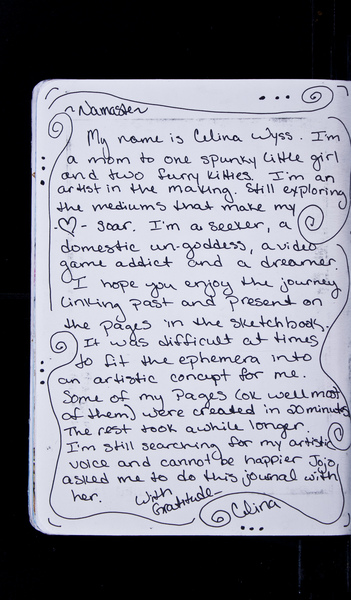 ~Namaste~
My name is Celina Wyss. I'm
a mom to one spunky little girl
and two furry kitties. I'm an
artist in the making. Still exploring
the mediums that make my
-♡- soar. I'm a seeker, a
domestic un-goddess, a video
game addict and a dreamer.
I hope you enjoy the journey
linking past and present on
the pages in the sketchbook.
It was difficult at times
to fit the ephemera into
an artistic concept for me.
Some of my pages (ok well most
of them) were created in 20 minutes
The rest took awhile longer.
I'm still searching for my artistic
voice and cannot be happier Jojo
asked me to do this journal with
her.
With
Gratitude-
Celina